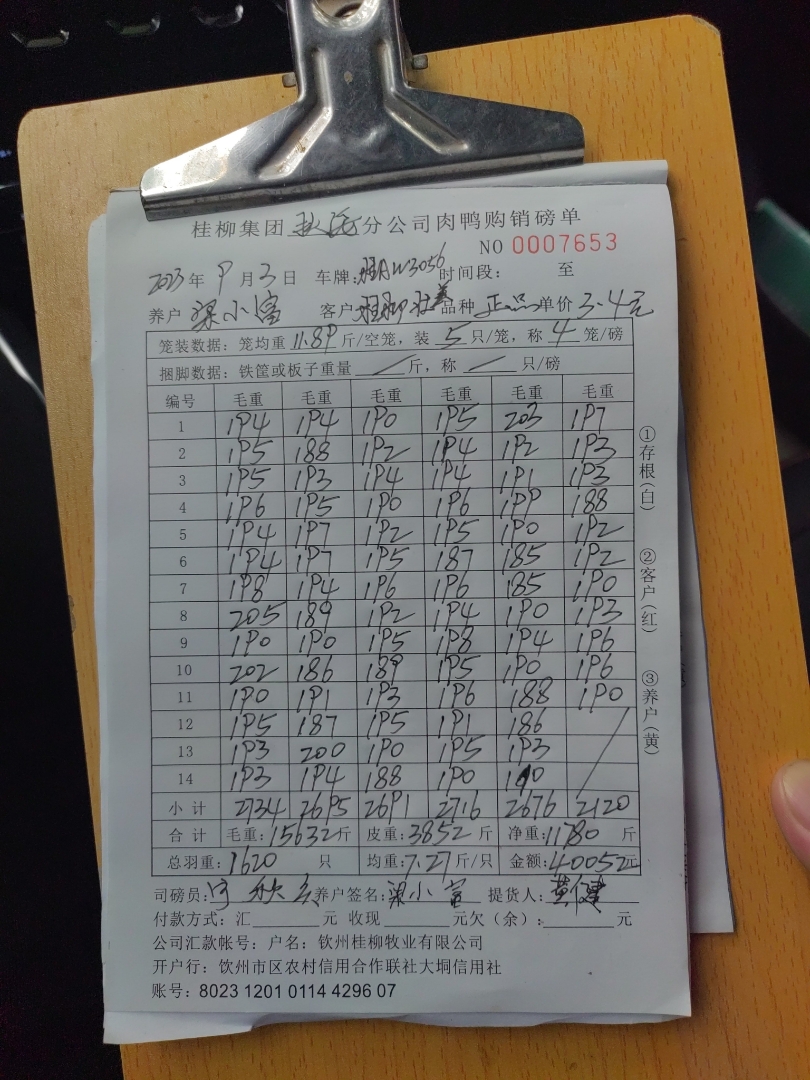 桂柳集团分公司肉鸭购销磅单
NO 0007653
2023年 9月3日 车牌:桂AW3056 时间段: 至
养户 梁小富 客户 桂柳 品种 正品 单价 3.4元
笼装数据: 笼均重 11.89 斤/空笼, 装 5 只/笼, 称 4 笼/磅
捆脚数据: 铁筐或板子重量 / 斤, 称 / 只/磅
编号 毛重 毛重 毛重 毛重 毛重 毛重
1 194 194 190 195 203 197
2 195 188 192 194 192 193
3 195 193 194 194 191 193
4 196 195 190 196 199 188
5 194 197 192 195 190 192
6 194 197 195 187 185 192
7 198 194 196 196 185 190
8 205 189 192 194 190 193
9 190 190 195 198 194 196
10 202 186 189 195 190 196
11 190 191 193 196 188 190
12 195 187 195 191 186
13 193 200 190 195 193
14 193 194 188 190 190
小计 2734 2695 2691 2716 2676 2120
合计 毛重:15632斤 皮重:3852斤 净重:11780斤
总羽重:1620 只 均重:7.27斤/只 金额:40052元
司磅员: 养户签名:梁小富 提货人:黄健
付款方式: 汇 元 收现 元欠(余): 元
公司汇款帐号: 户名: 钦州桂柳牧业有限公司
开户行: 钦州市区农村信用合作联社大垌信用社
账号: 8023 1201 0114 4296 07
①存根(白)
②客户(红)
③养户(黄)